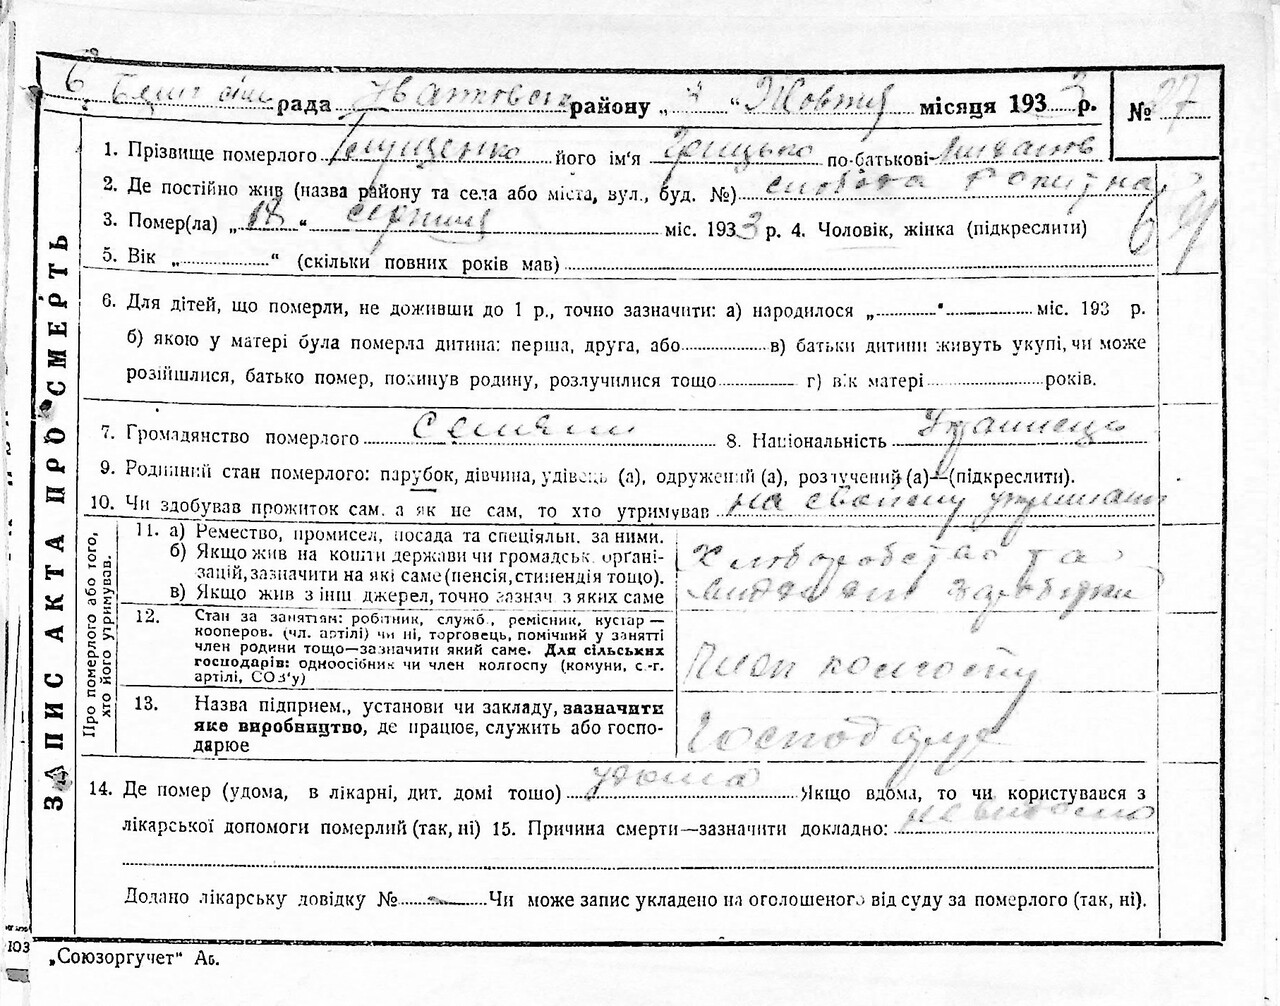 рада Іванковськ району „3“ Жовтня місяця 1933 р. № 27
1. Прізвище померлого його ім'я Грицько по-батькові
2. Де постійно жив (назва району та села або міста, вул., буд. №) слобода
3. Помер(ла) „18“ серпня міс. 1933 р. 4. Чоловік, жінка (підкреслити)
5. Вік „ “ (скільки повних років мав)
6. Для дітей, що померли, не доживши до 1 р., точно зазначити: а) народилося „ “ міс. 193 р.
б) якою у матері була померла дитина: перша, друга, або в) батьки дитини живуть укупі, чи може
розійшлися, батько помер, покинув родину, розлучилися тощо г) вік матері років.
7. Громадянство померлого Селянин 8. Національність Українець
9. Родинний стан померлого: парубок, дівчина, удівець (а), одружений (а), розлучений (а)—(підкреслити).
10. Чи здобував прожиток сам, а як не сам, то хто утримував на своєму утриманні
ЗАПИС АКТА ПРО СМЕРТЬ
Про померлого або того, хто його утримував.
11. а) Ремество, промисел, посада та спеціяльн. за ними.
б) Якщо жив на кошти держави чи громадськ. органі-
зацій, зазначити на які саме (пенсія, стипендія тощо).
в) Якщо жив з інш джерел, точно зазнач з яких саме
Хліборобство та
заробідки
12. Стан за занятям: робітник, служб., ремісник, кустар —
кооперов. (чл. артілі) чи ні, торговець, помічний у занятті
член родини тощо—зазначити який саме. Для сільських
господарів: одноосібник чи член колгоспу (комуни, с.-г.
артілі, СОЗ'у)
Член колгоспу
13. Назва підприєм., установи чи закладу, зазначити
яке виробництво, де працює, служить або госпо-
дарює
Господарює
14. Де помер (удома, в лікарні, дит. домі тощо) удома Якщо вдома, то чи користувався з
лікарської допомоги померлий (так, ні) 15. Причина смерти—зазначити докладно: невидомо
Додано лікарську довідку № Чи може запис укладено на оголошеного від суду за померлого (так, ні).
103
„Союзоргучет“